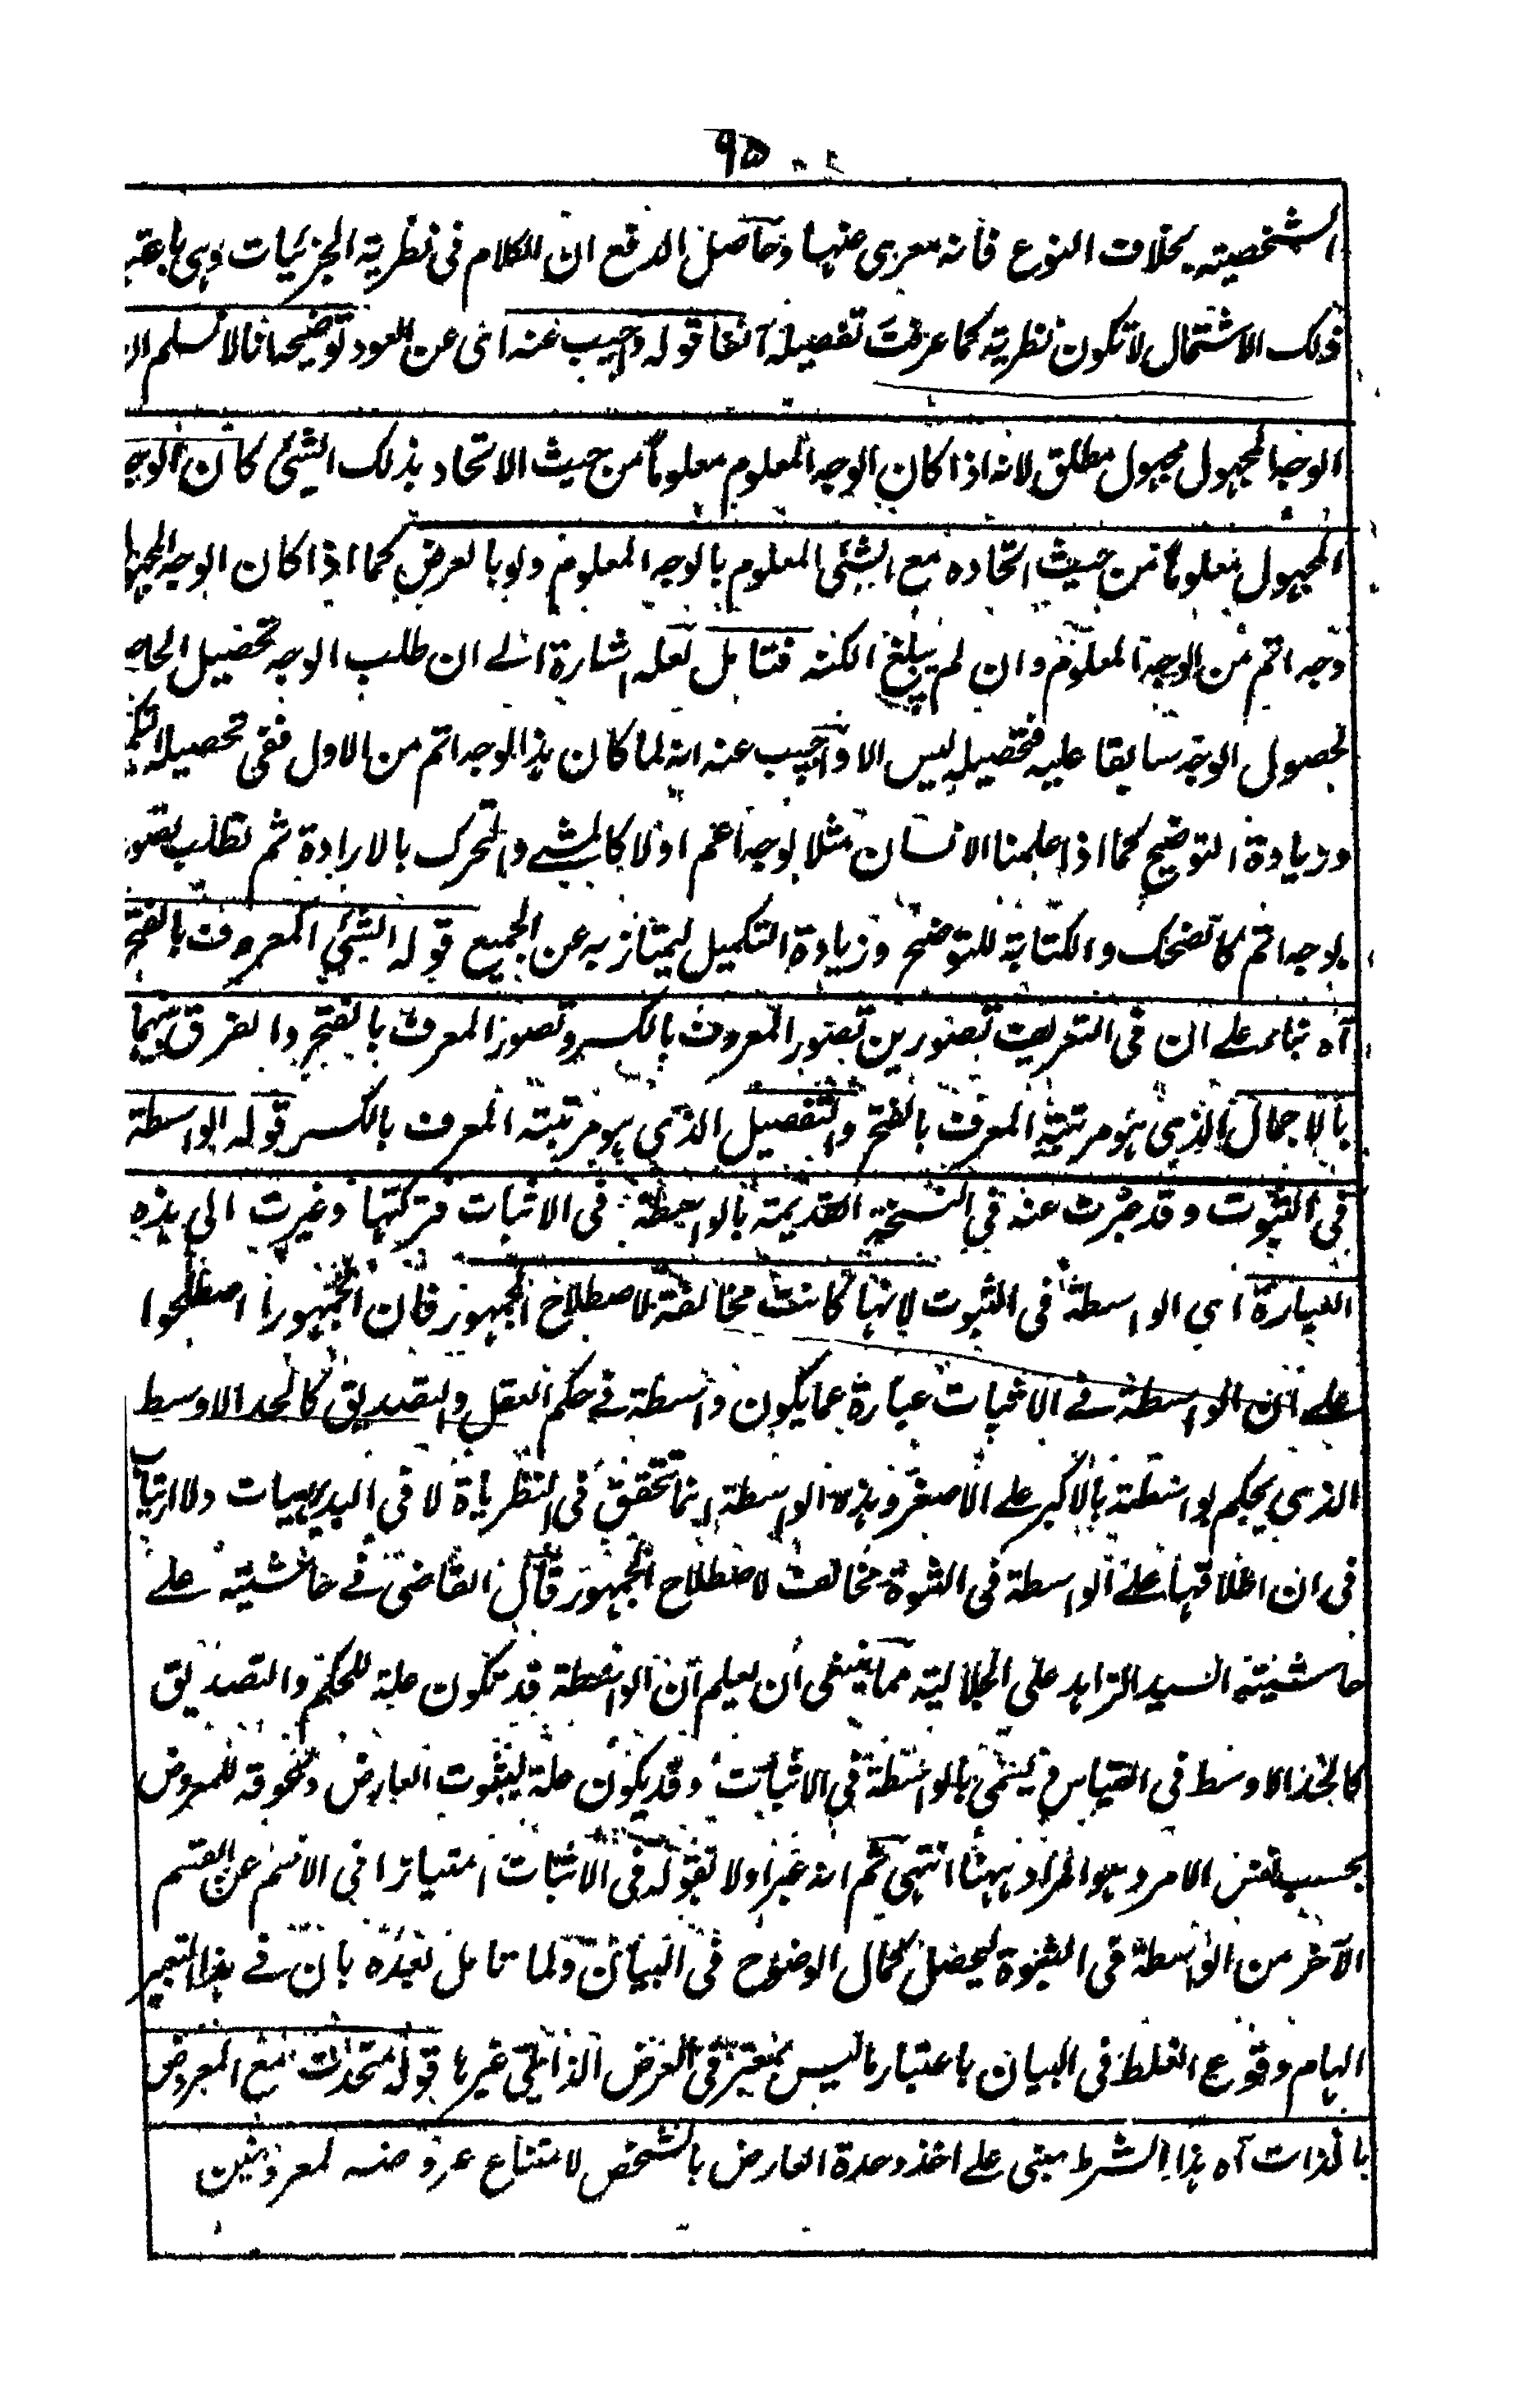 ٩٥
الشخصية بخلاف النوع فانه معرى عنها وحاصل الدفع ان الكلام فى نظرية الجزئيات وہى باعتبا
ذلك الاشتمال لا تكون نظرية كما عرفت تفصيله آنفا قوله واجيب عنه انى عن العود توضيحه انا لا نسلم ان
الوجه المجہول مجہول مطلق لانه اذا كان الوجه المعلوم معلوماً من حيث الاتحاد بذلك الشئ كان الوجه
المجہول معلوماً من حيث اتحاده مع الشئ المعلوم بالوجه المعلوم ولو بالعرض كما اذا كان الوجه المجہول
وجه اتم من الوجه المعلوم وان لم يبلغ الكنه فتامل لعله اشارة الے ان طلب الوجه تحصيل الحاصل
لحصول الوجه سابقا عليه فتحصيله ليس الا واجيب عنه انه لما كان ہذا الوجه اتم من الاول ففى تحصيله التكميل
وزيادة التوضيح كما اذا علمنا الانسان مثلا بوجه اعم اولا كالمشے والتحرك بالارادة ثم نطلب تصوره
بوجه اتم كالضحك والكتابة للتوضيح وزيادة التكميل ليمتاز به عن الجميع قوله الشئ المعرف بالفتح
آه بناء علے ان فى التعريف تصورين تصور المعرف بالكسر وتصور المعرف بالفتح والفرق بينہما
بالاجمال الذى ہو مرتبة المعرف بالفتح والتفصيل الذى ہو مرتبة المعرف بالكسر قوله الواسطة
فى الثبوت وقد عبرت عنه فى النسخة القديمة بالواسطة فى الاثبات فتركتہا وغيرت الى ہذه
العبارة اى الواسطة فى الثبوت لانہا كانت مخالفة لاصطلاح الجمہور فان الجمہور اصطلحوا
علے ان الواسطة فے الاثبات عبارة عما يكون واسطة فے حكم العقل والتصديق كالحد الاوسط
الذى يحكم بواسطته بالاكبر علے الاصغر وہذه الواسطة انما تحقق فى النظرياة لا فى البديہيات ولا ارتياب
فى ان اطلاقہا علے الواسطة فى الثبوة مخالف لاصطلاح الجمہور قال القاضى فے حاشيته علے
حاشية السيد الزاہد على الجلالية مما ينبغى ان يعلم ان الواسطة قد تكون علة للحكم والتصديق
كالحد الاوسط فى القياس فيسمى بالواسطة فى الاثبات وقد يكون علة لثبوت العارض ولحوقه للمعروض
بحسب نفس الامر وہو المراد ہہنا انتہى ثم انه عبر اولا بقوله فى الاثبات امتيازا فى الاسم عن القسم
الآخر من الواسطة فى الثبوة ليحصل كمال الوضوح فى البيان ولما تامل بعده بان فے ہذا التعبير
ايہام وقوع الغلط فى البيان باعتبار ما ليس بمعتبر فى العرض الذاتى غيرہا قوله متحدة مع المعروض
بالذات آه ہذا الشرط مبنى علے اخذ وحدة العارض بالشخص لامتناع عروضه لمعروضين